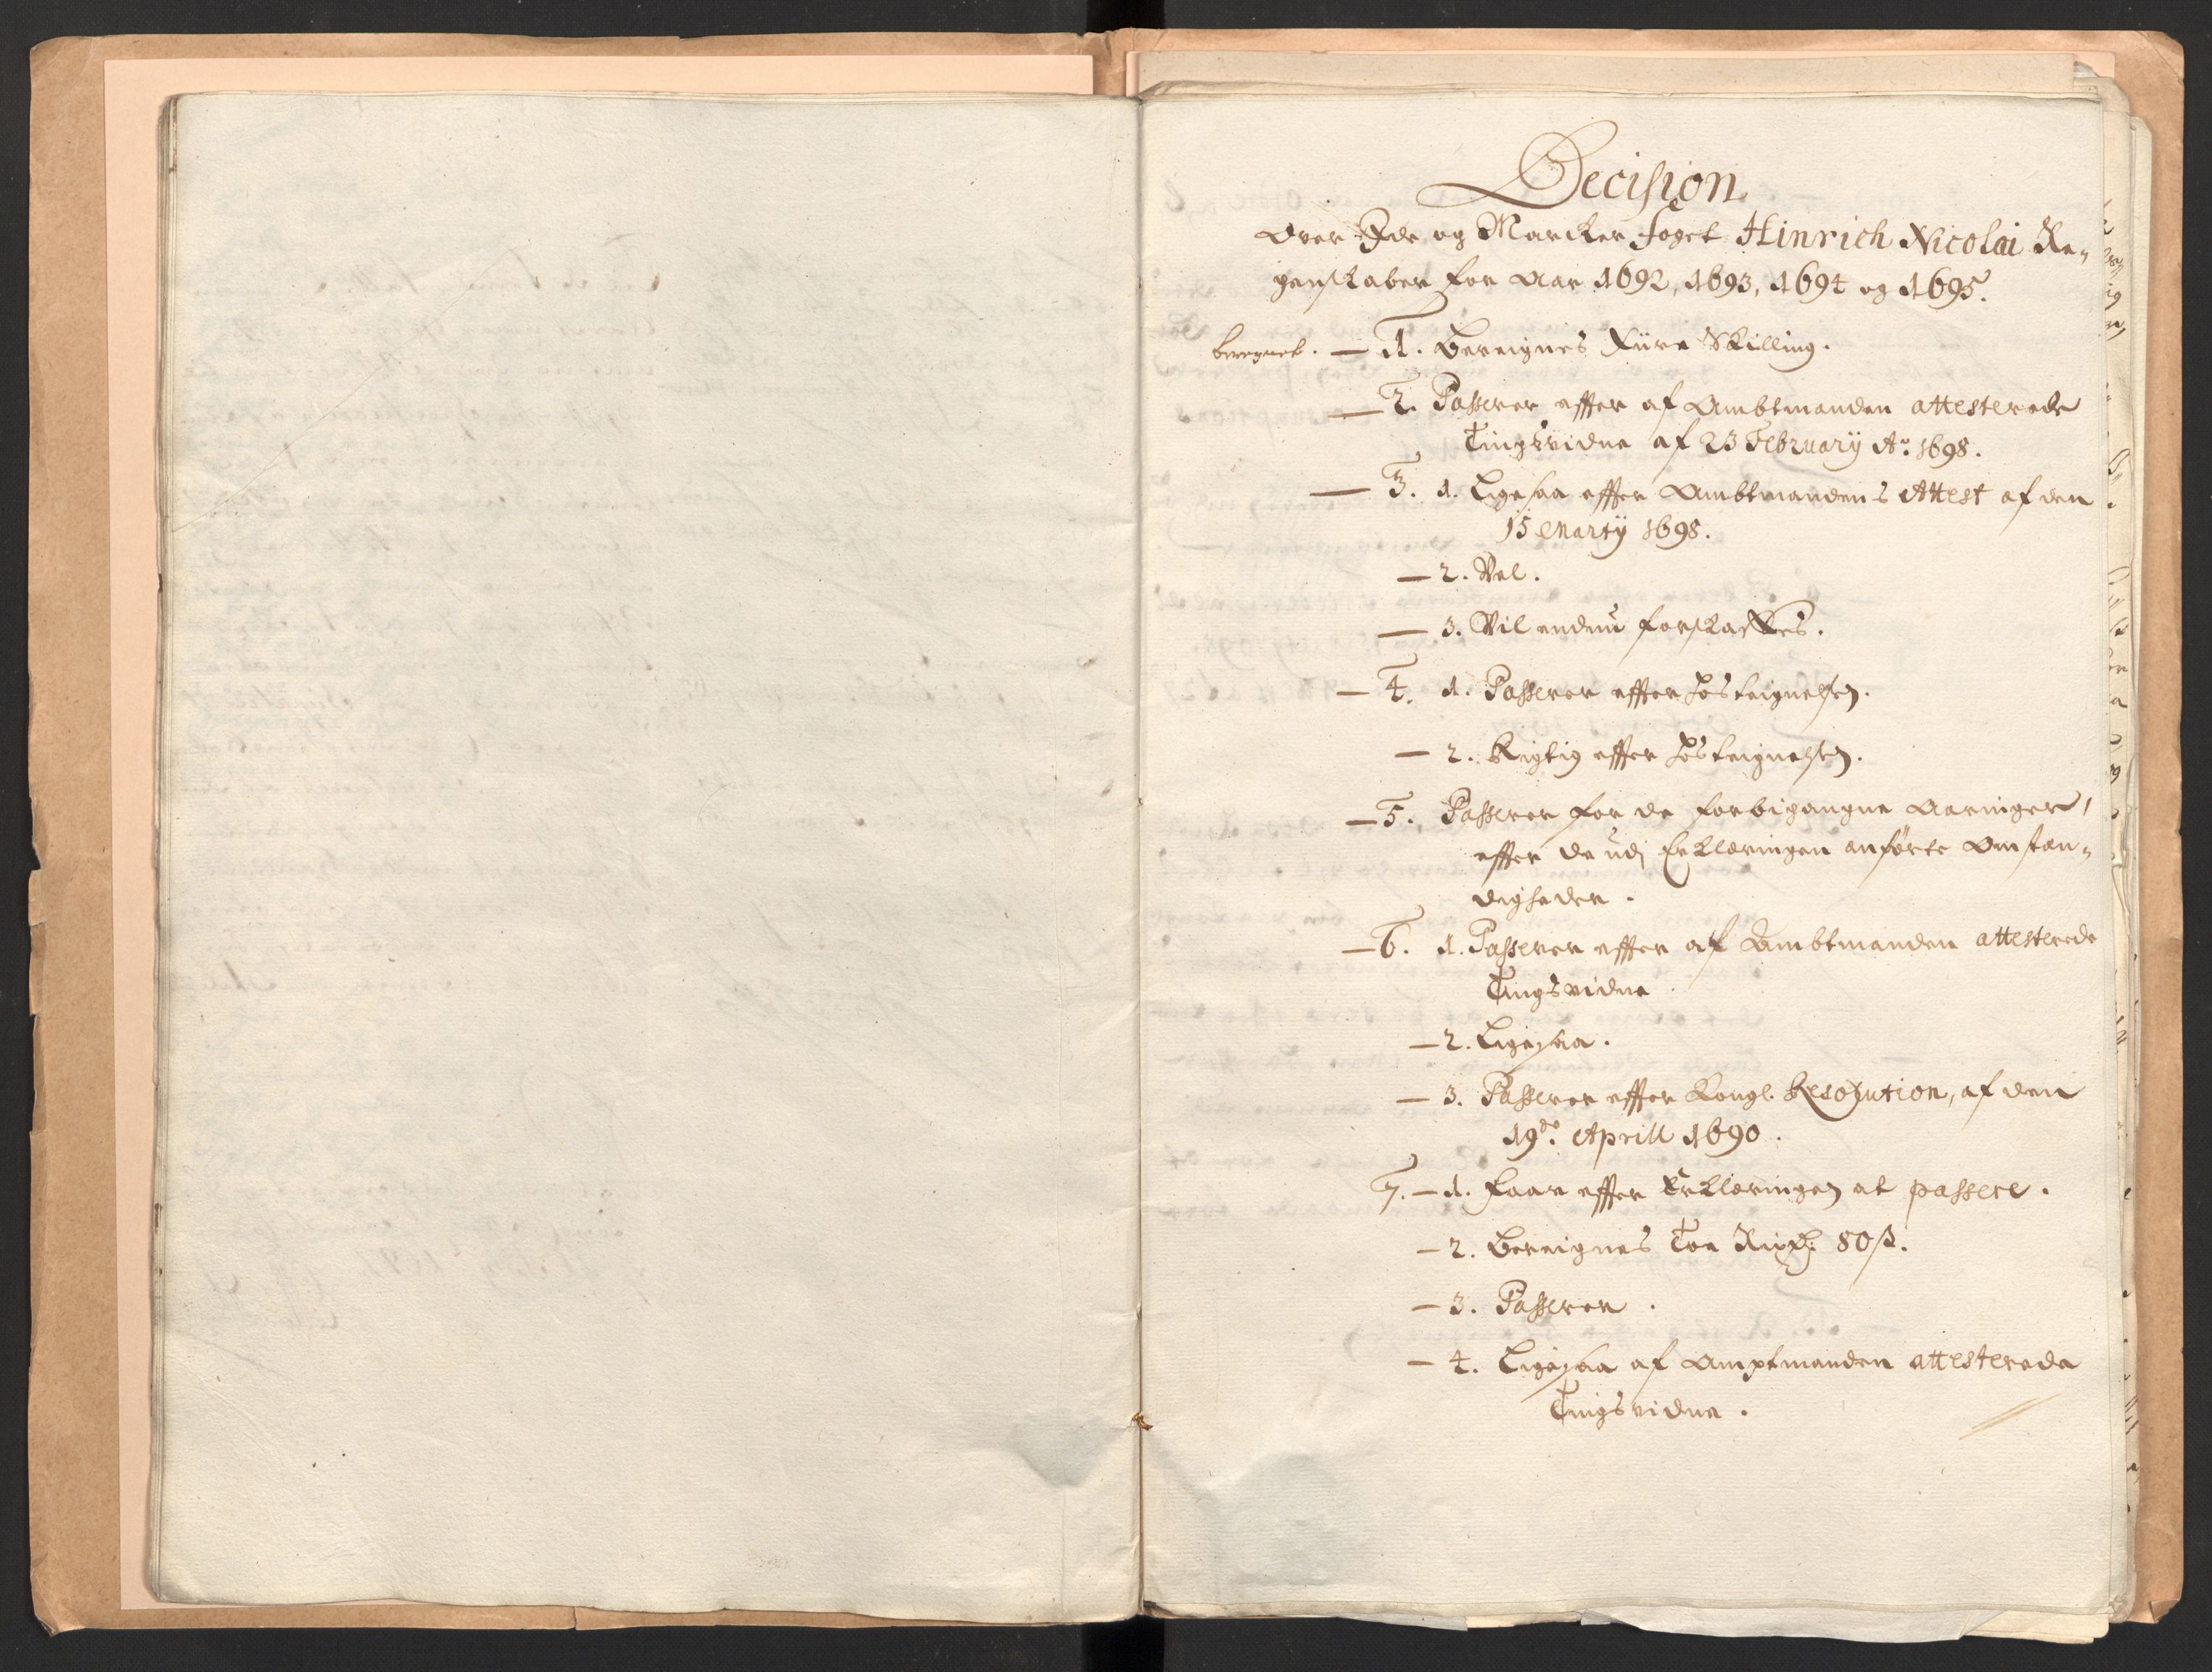 Decision
Over Ide og Marcker foget Hinrich Nicolai Re„
genskaber for Aar 1692, 1693, 1694 og 1695.
beregnet. — 1. Bereignes Fiire Skilling.
— 2. Passerer effter af Ambtmanden attesterede
Tingsvidne af 23 February Ao. 1698.
— 3. 1. Ligesaa effter Ambtmandens Attest af den
15 Marty 1698.
— 2. Vel.
— 3. Vil endnu forskaffes.
— 4. 1. Passerer effter
— 2. Rigtig effter
— 5. Passerer for de forbigangne Aaringer,
effter de udj Erklæringen anførte Omstæn„
digheder.
— 6. 1. Passerer effter af Ambtmanden attesterede
Tingsvidne.
— 2. Ligesaa.
— 3. Passerer effter Kongl. Resolution, af den
19de. Aprill 1690.
7. — 1. Faar effter Erklæringen at passere.
— 2. Bereignes Toe Rixd: 80 ß.
— 3. Passerer.
— 4. Ligesaa af Amptmanden attesterede
Tingsvidne.